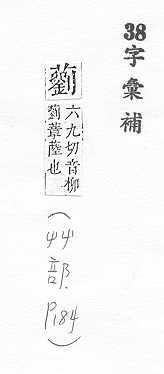 38字彙補
六九切音柳
也
(艸部 P184)